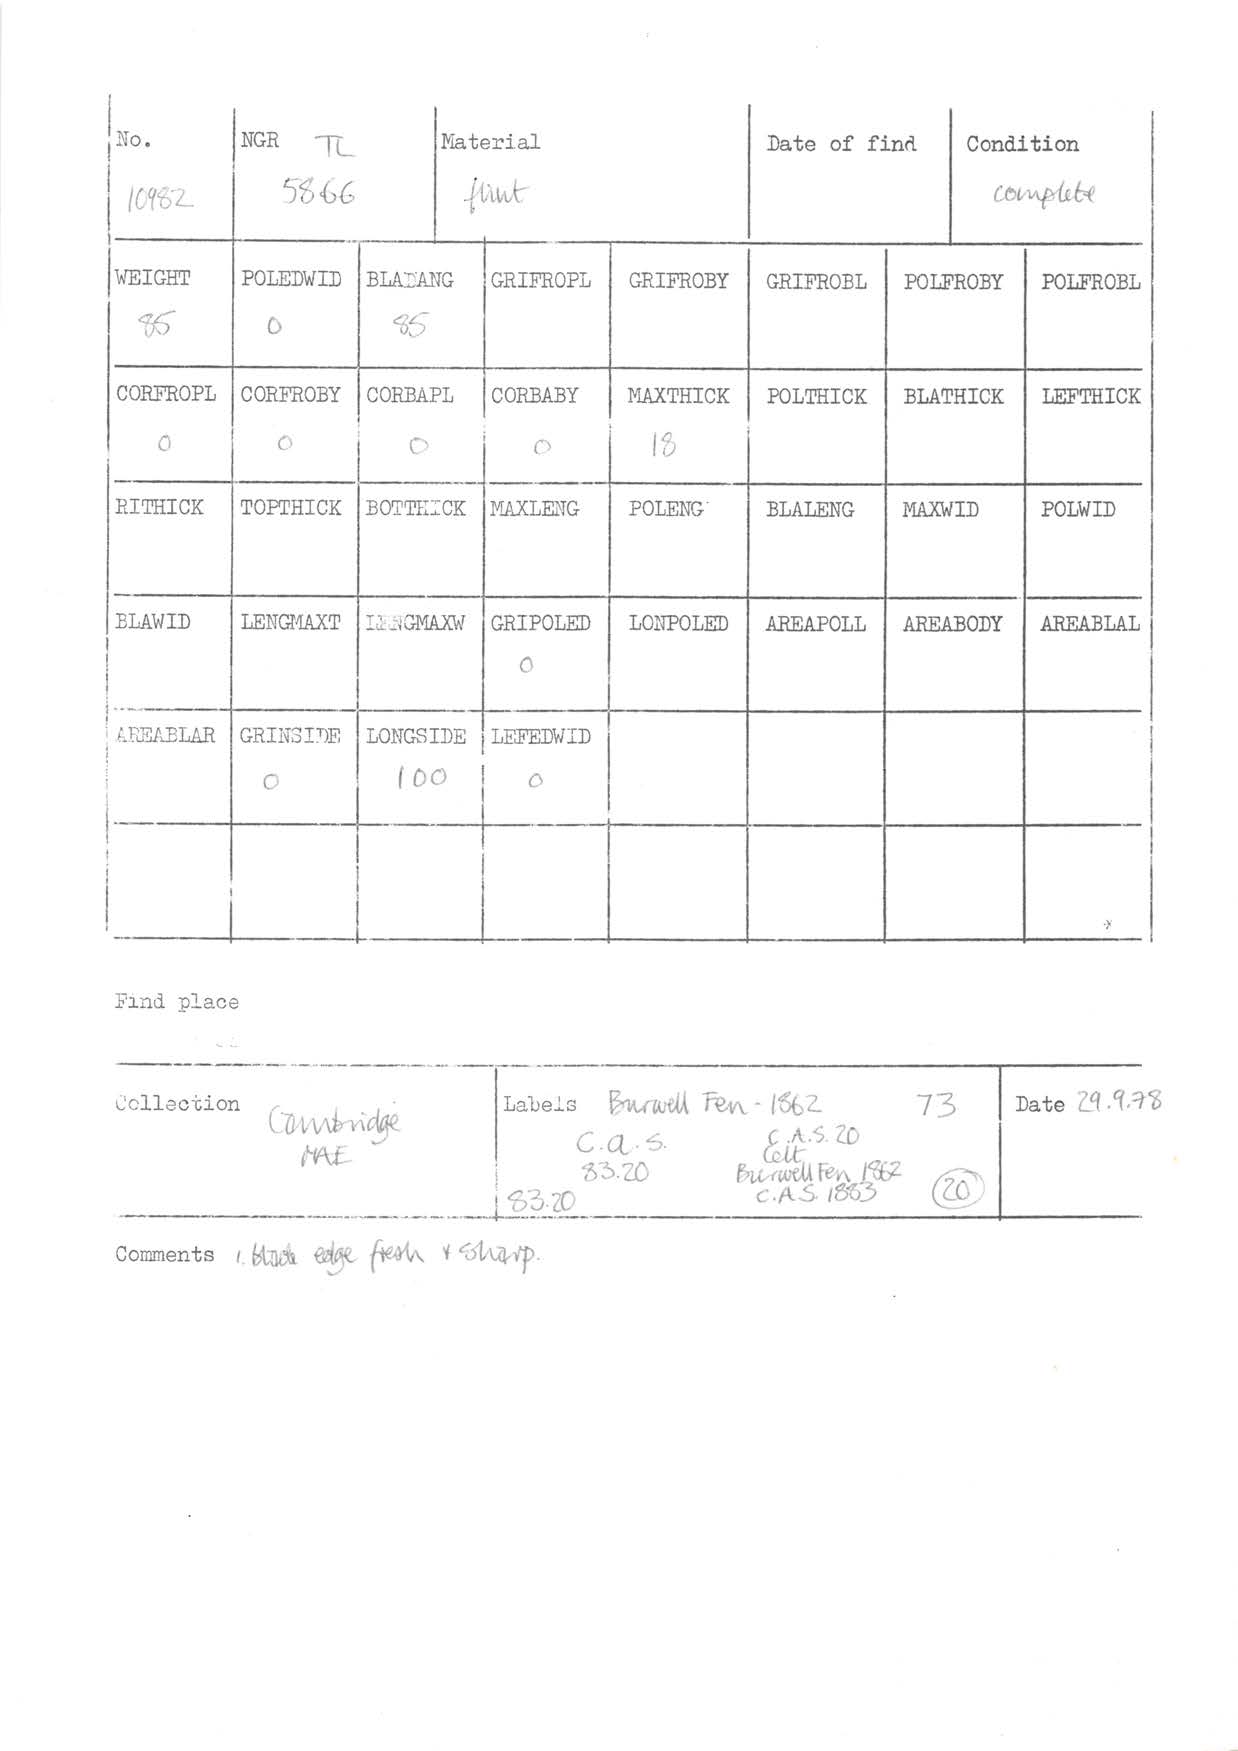 No. NGR TL Material Date of find Condition
10982 5866 flint complete
WEIGHT POLEDWID BLADANG GRIFROPL GRIFROBY GRIFROBL POLFROBY POLFROBL
85 0 85
CORFROPL CORFROBY CORBAPL CORBABY MAXTHICK POLTHICK BLATHICK LEFTHICK
0 0 0 0 18
RITHICK TOPTHICK BOTTHICK MAXLENG POLENG BLALENG MAXWID POLWID
BLAWID LENGMAXT LENGMAXW GRIPOLED LONPOLED AREAPOLL AREABODY AREABLAL
0
AREABLAR GRINSIDE LONGSIDE LEFEDWID
0 100 0
Find place
Collection Cambridge
MAE
Labels Burwell Fen - 1862 73
C.A.S. C.A.S. 20
Celt
83.20 Burwell Fen 1862
83.20 C.A.S. 1883 20
Date 29.9.78
Comments 1. blade edge fresh & sharp.